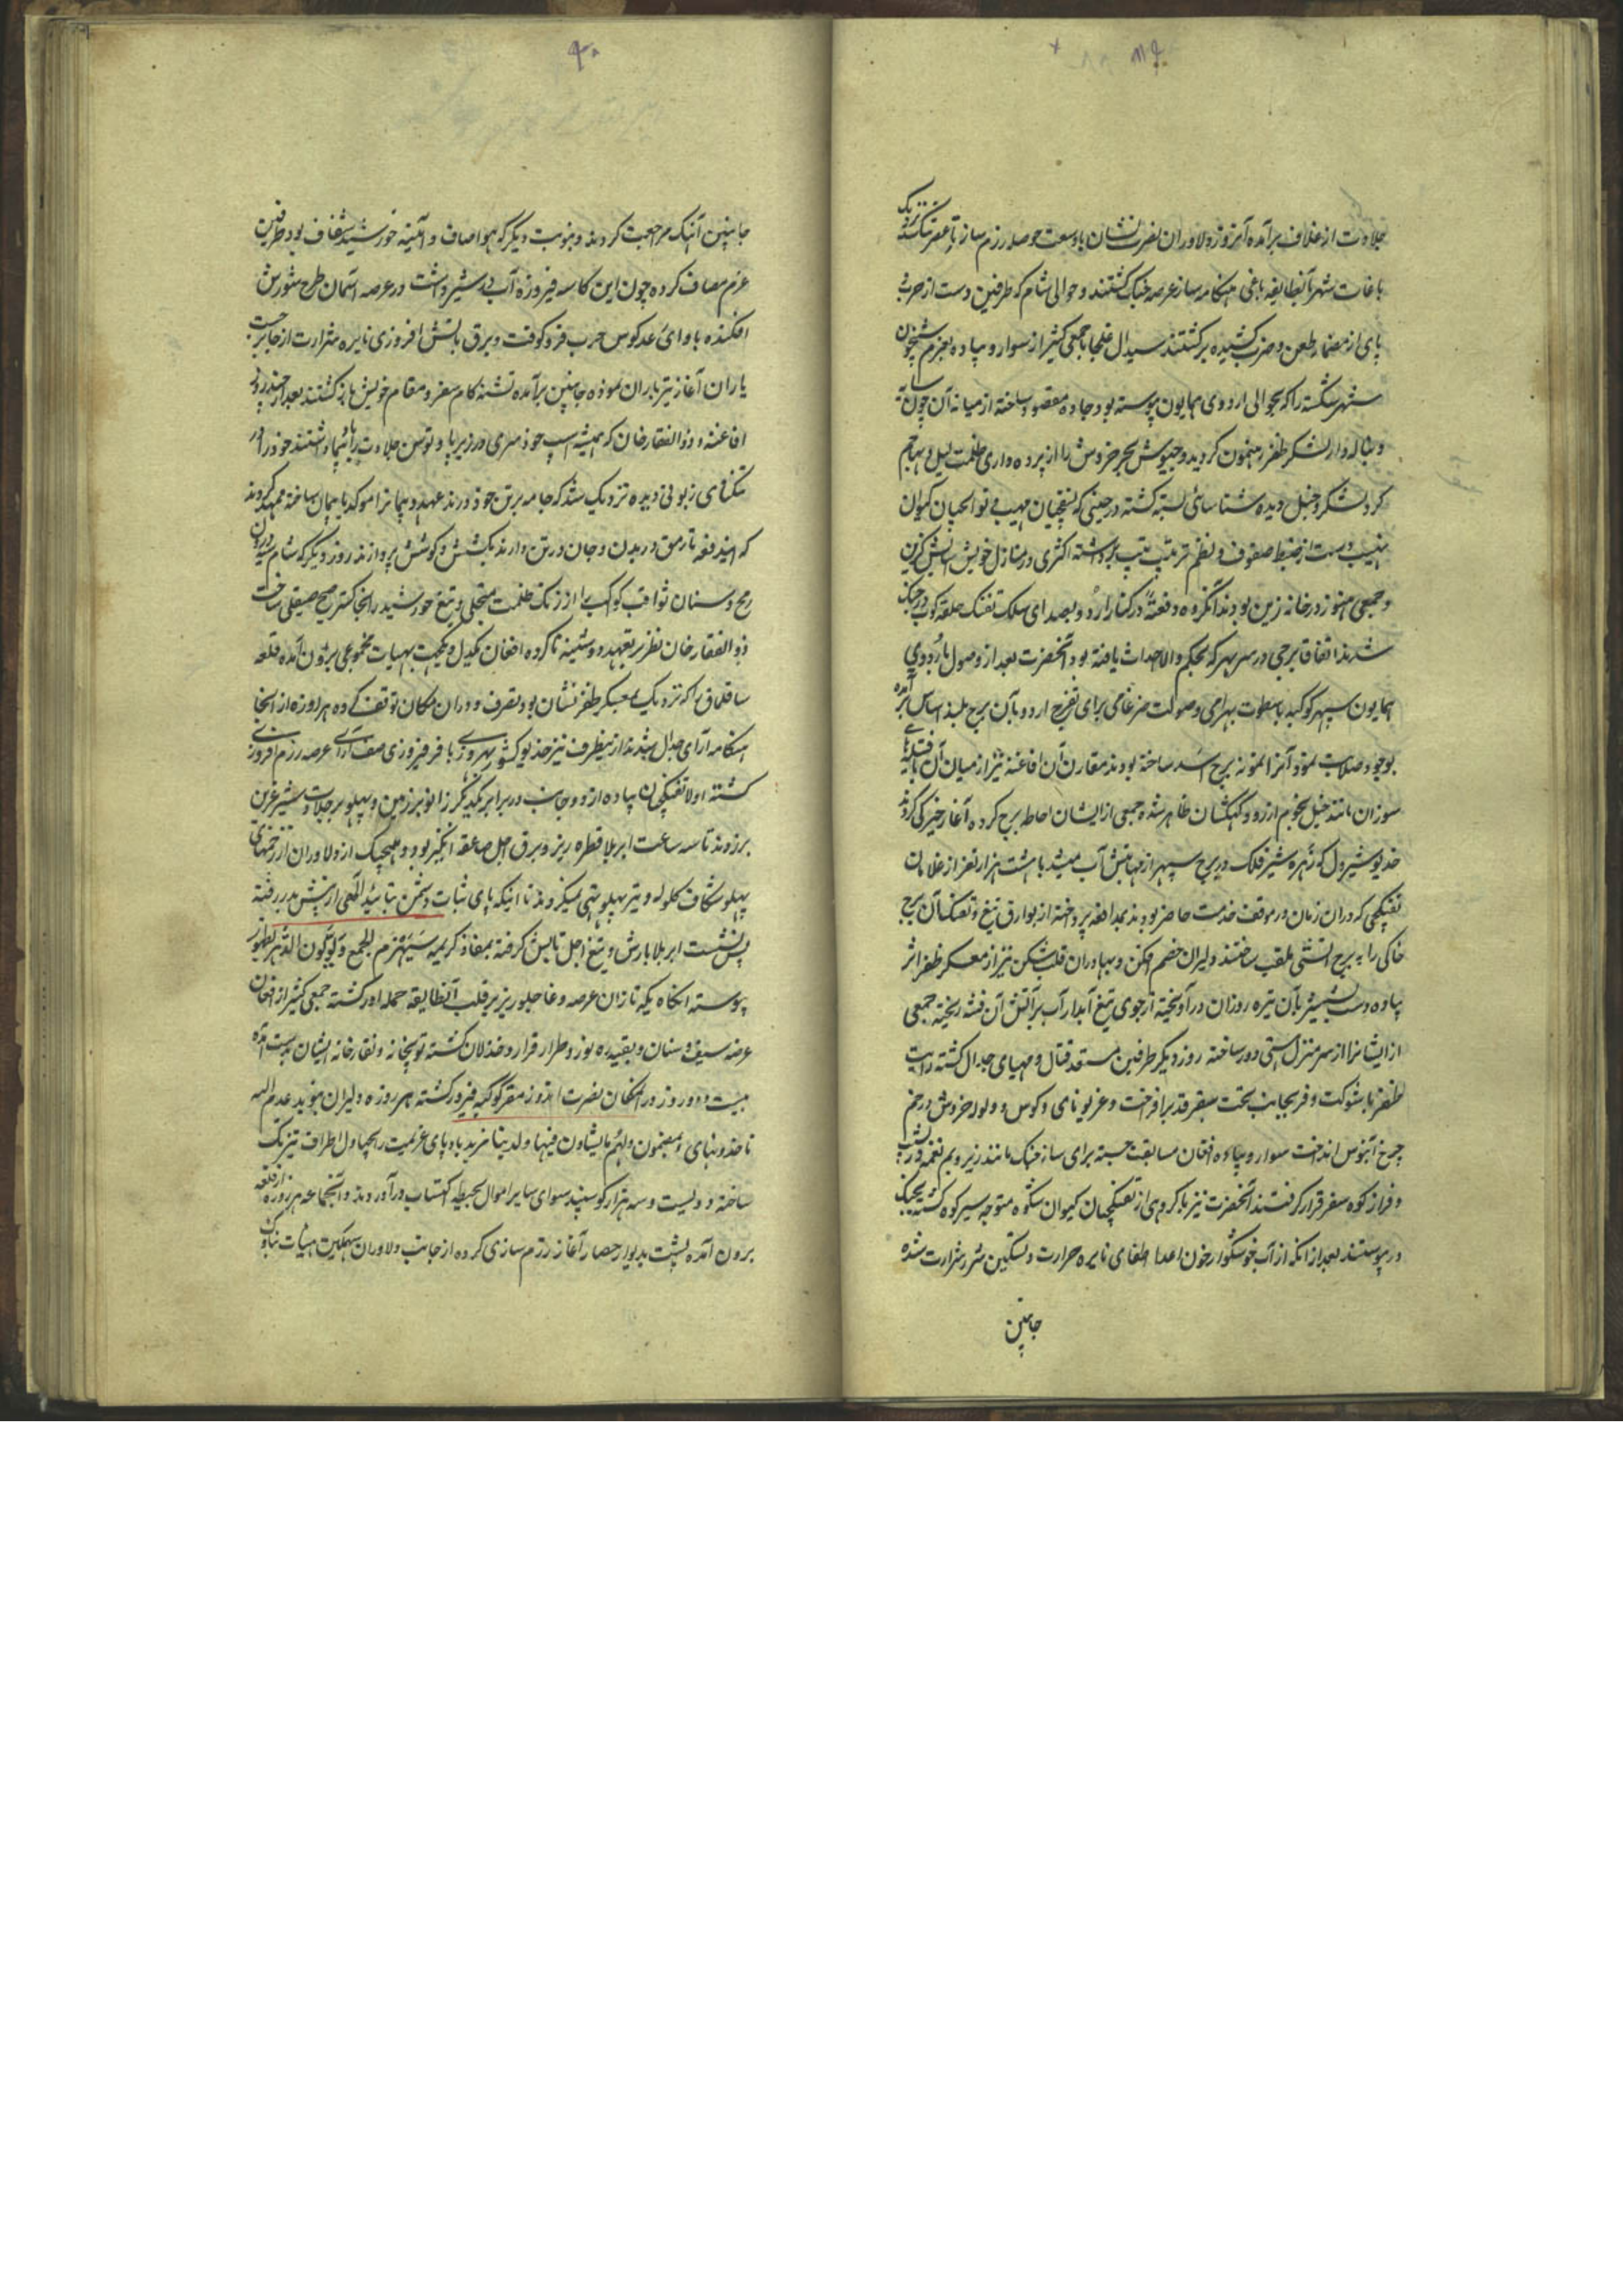 جلادت از غلاف برآمده آنروز دلاوران نصرت نشان با وسعت حوصله رزم ساز تا عصر تنگ نزدیک
باغات شهر بآنطایفه باغی هنگامه ساز عرصه جنک گشتند و حوالی شام که طرفین دست از حرب
پای از مضمار طعن و ضرب کشیده برگشتند سیدال غلجا با جمعی کثیر از سوار و پیاده بعزم شبیخون
شهر شکسته را که بحوالی اردوی همایون پیوسته بود جاده مقصود ساخته از میانه آن چون سایه
دنباله وار لشکر ظفر رهنمون گردید و جیوش بحر خروش را از پرده داری ظلمت لیل و تهاجم
گرد لشکر و خیل دیده شناسائی بسته گشته در حینی که نسقچیان مهیب نواحیان کیوان
نهیب دست از ضبط صفوف و نظم ترتیب برداشته اکثری در منازل خویش آسایش گزین
و جمعی هنوز در خانه زین بودند آنگروه دفعةً در کنار اردو بصدای سلک تفنک حلقه کوب در جنک
شدند اتفاقا برجی در سر بهر که بحکم والا احداث یافته بود آنحضرت بعد از وصول باردوی
همایون سپهر کوکبه با سطوت بهرامی و صولت ضرغامی برای تفرج اردو بآن برج بلند اساس برآمده
بوجود صلابت نمود آنرا نمونه برج اسد ساخته بودند مقارن آن افاغنه نیز از میان آن با فتیله های
سوزان مانند خیل نجوم از رود کهکشان ظاهر شده جمعی از ایشان احاطه برج کرده آغاز خیرگی کردند
خدیو شیردل که زهره شیر فلک در برج سپهر از مهابتش آب میشد با هشت هزار نفر از غلامان
تفنکچی که در ان زمان در موقف خدمت حاضر بودند بمدافعه پرداخته از بوارق تیغ و تفنک آن برج
خاکی را به برج آتشی ملقب ساختند دلیران خصم افکن و بهادران قلب شکن نیز از معسکر ظفر اثر
پیاده دست بشمشیر بآن تیره روزان درآویخته از جوی تیغ آبدار آب برآتش آن فتنه ریخته جمعی
از ایشانرا از سر منزل هستی دور ساخته روز دیگر طرفین مستعد قتال و مهیای جدال گشته رایت
ظفر با شوکت و فر بجانب تخت سفر قد برافراخت و غریو نای و کوس و ولوله خروش در خم
چرخ آبنوس انداخت سوار و پیاده افغان مسابقت جسته برای ساز جنک مانند زیر و بم نغمه در نشیب
و فراز کوه سفر قرار گرفتند آنحضرت نیز با گروهی از تفنکچیان کیوان شکوه متوجه سیر کوه گشته بجنک
در پیوستند بعد از آنکه از آب خوشگوار خون اعدا اطفای نایره حرارت و تسکین شرر شرارت شده
جانبین
جانبین آهنک مراجعت کردند و بنوبت دیگر که هوا صاف و آئینه خورشید شفاف بود طرفین
عزم مصاف کرده چون این کاسه فیروزه آب در شیر داشت در عرصه آسمان طرح شورش
افکنده با وای رعد کوس حرب فرو کوفت و برق بآتش افروزی نایره شرارت از جا برجست
یاران آغاز تیرباران نموده جانبین برآمده تشنه کام بمقر و مقام خویش بازگشتند بعد از چند روز
افاغنه و ذوالفقار خان که همیشه اسپ خود سری در زیر پا و توسن جلادت راه پیما داشتند خود را در
تنکنای زبونی دیده نزدیک شد که جامه بر تن خود درند عهد و پیمانرا موکد بایمان ساخته ممهد کردند
که ایندفعه تا رمق در بدن و جان در تن دارند بکشش و کوشش پردازند روز دیگر که شام سپهر دوران
رمح و سنان ثواقب کواکب را از زنک ظلمت متجلی و تیغ خورشید را بخاکستر صبح صیقلی ساخت
ذوالفقار خان نظر بر تعهد دوشینه تا گروه افغان یکدل و یکجهت بهیات مجموعی برون آمده قلعه
ساقلماق را که نزدیک بمعسکر ظفر نشان بود بتصرف و در ان مکان توقف کرده هر روزه از انجا
هنگامه آرای جدال میشدند از ینطرف نیز خدیو کشور بهروزی با فر فیروزی صف آرای عرصه رزم افروزی
گشته اولا تفنکچیان پیاده از دو جانب در برابر یکدیگر زانو بر زمین و پهلو بر جلادت شیر عرین
برزدند تا سه ساعت ابر بلا قطره ریز و برق اجل صاعقه انگیز بود و هیچیک از دلاوران از زخمهای
پهلو شکاف گلوله و تیر پهلو تهی نمیکردند تا اینکه پای ثبات دشمن بتائید آلهی از پیش بدر رفته
پس نشست ابر بلا بارش و تیغ اجل تابش گرفته بمفاد کریمه سیهزم الجمع و یولون الدبر بظهور
پیوسته آنکاه یکه تازان عرصه وغا جلوریز بر قلب آنطایفه حمله اور گشته جمعی کثیر از افغان
عرضه سیف و سنان و بقیه ره نورد طرار فرار و خذلان گشته توپخانه و نقارخانه ایشان بدست آمده
بیست و دو روز در آنمکان نصرت اندوز مقر کوکبه فیروز گشته هر روزه دلیران بنوید عدم الیه
تاخذونهای و بمضمون و لهم ما یشاون فیها و لدینا مزید بادپای عزیمت را بچپاول اطراف تیز تک
ساخته دویست و سه هزار گوسپند سوای سایر اموال بحیطه اکتساب درآوردند و آنجماعه هر روزه از قلعه
برون آمده پشت بدیوار حصار آغاز رزم سازی کرده از جانب دلاوران سهمگین هیات بنا و